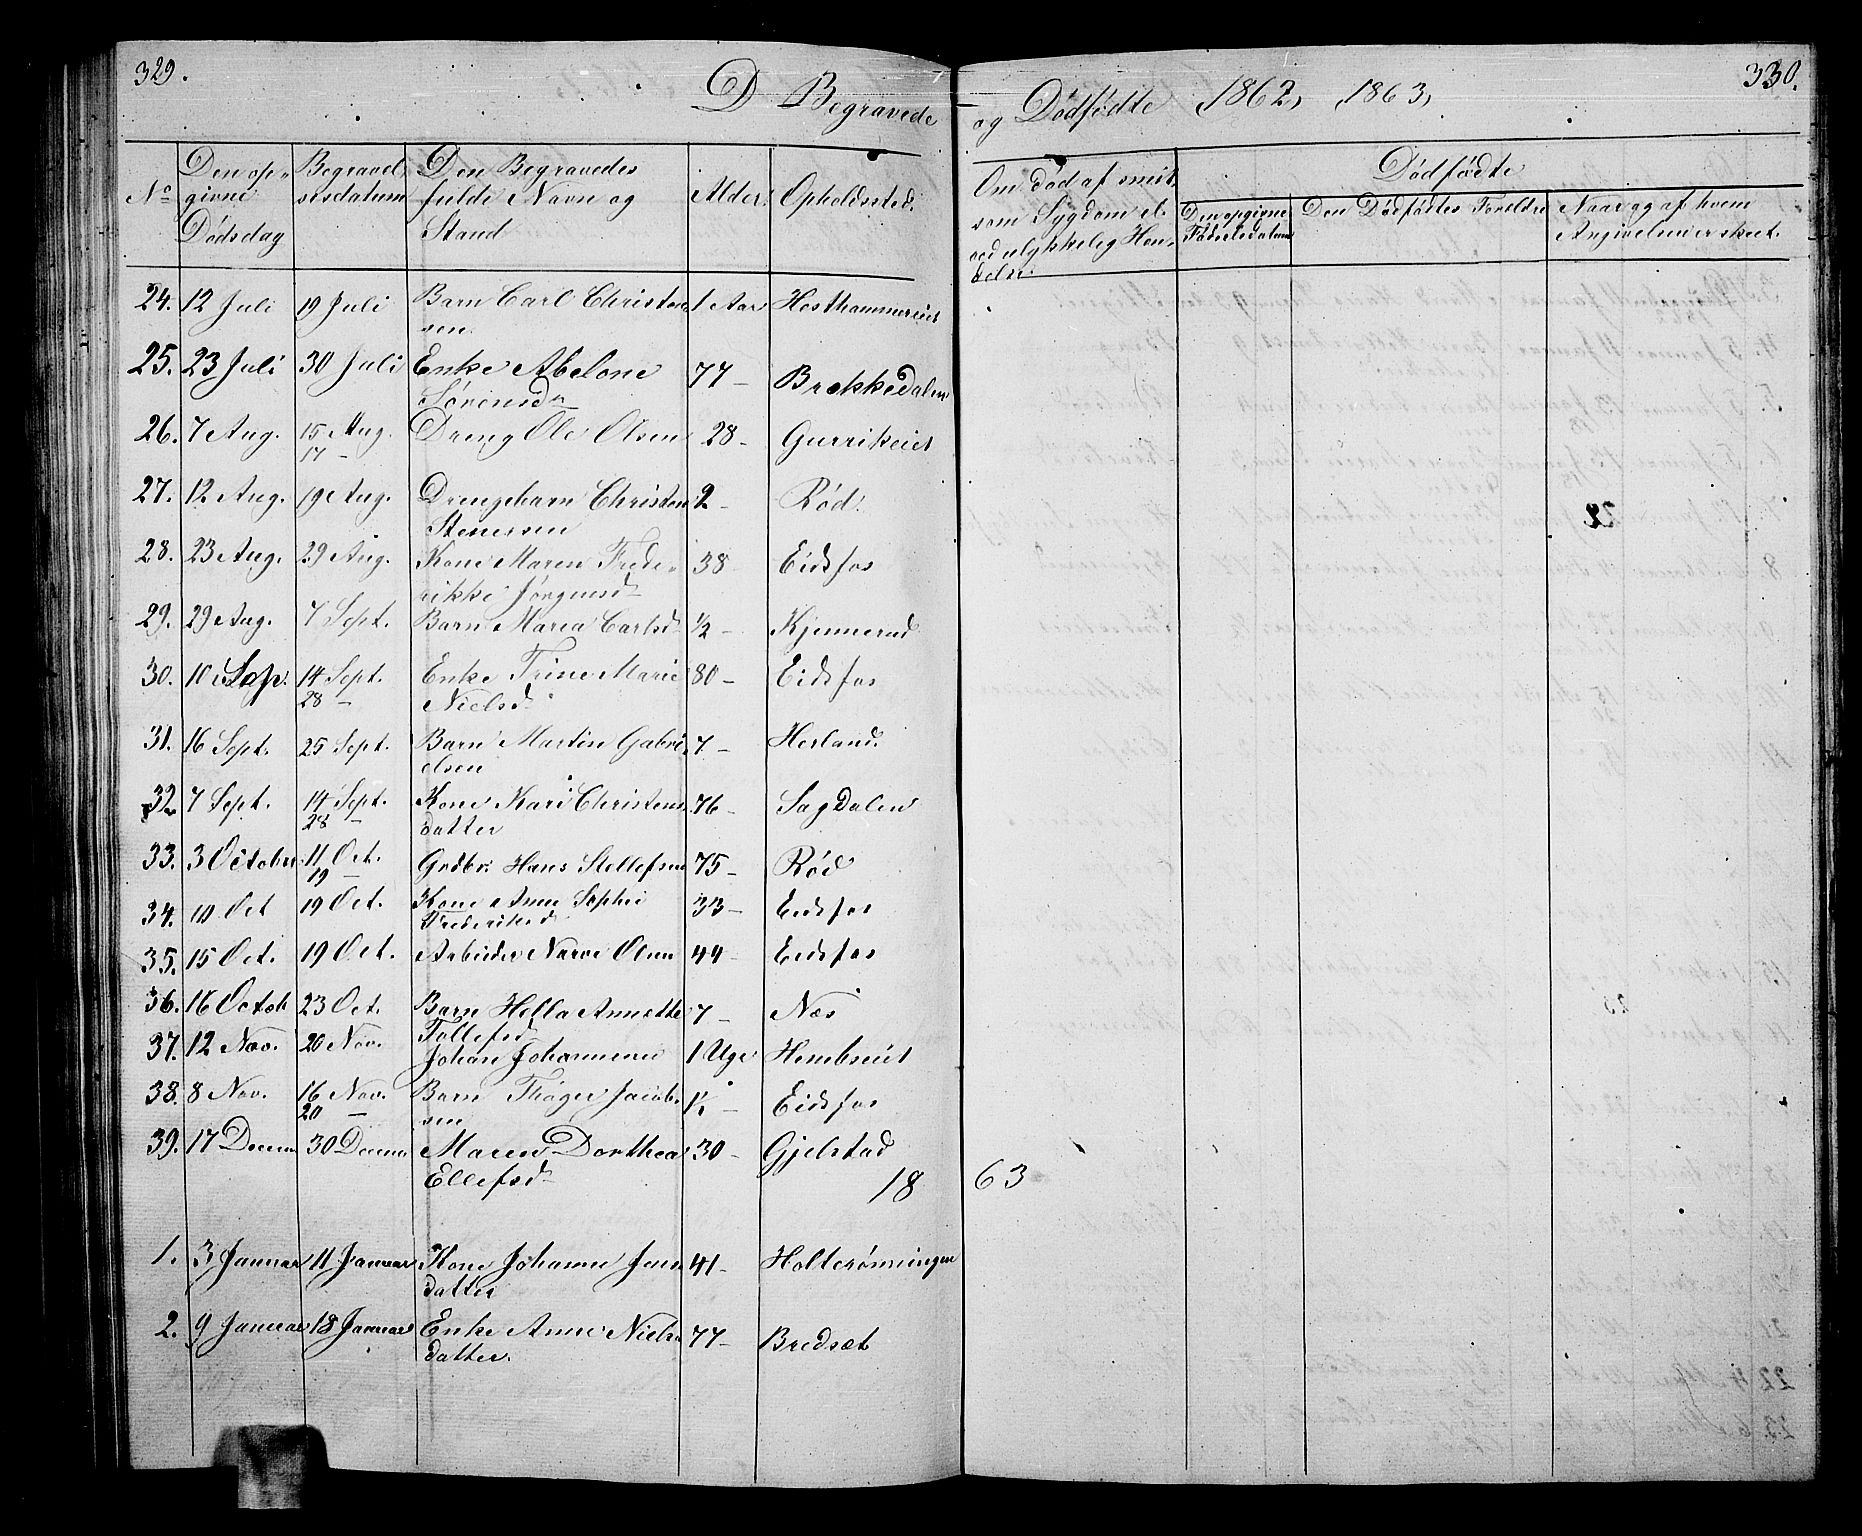 329.
D Begravede
og Dødfødte 1862, 1863,
330.
No
Den op-
givne
Dødsdag
Begravel-
sesdatum
Den Begravedes
fulde Navn og
Stand
Alder.
Opholdssted.
Om død af smit-
som Sygdom el.
ved ulykkelig Hæn-
delse.
Dødfødte
Den opgivne
Fødselsdatum
Den Dødfødtes Foreldre
Naar og af hvem
Angivelsen er skeet.
24. 12 Juli 19 Juli Barn Carl Christen- 1 Aar Hesthammereiet
sen.
25. 23 Juli 30 Juli Enke Abelone 77 - Brekkedalen
Sørensd.
26. 7 Aug. 15 Aug. Dreng Ole Olsen 28 - Gurrikeiet
17 -
27. 12 Aug. 19 Aug. Drengebarn Christen 2 - Rød.
Stenersen
28. 23 Aug. 29 Aug. Kone Maren Frede- 38 - Eidsfos
rikke Jørgensd.
29. 29 Aug. 7 Sept. Barn Maria Carlsd. 1/2 - Kjennerud
30. 10 Sep. 14 Sept. Enke Trine Marie 80 - Eidsfos
28 - Nielsd.
31. 16 Sept. 25 Sept. Barn Martin Gabri- 7 - Herland.
elsen
32 7 Sept. 14 Sept. Kone Kari Christens 76 - Sagdalen
28 - datter
33. 3 October 11 Oct. Grdbr. Hans Stellefsen 75 - Rød
19 -
34. 10 Oct 19 Oct. Kone Anne Sophie 33 - Eidsfos
Frederiksd.
35. 15 Oct. 19 Oct. Arbeider Narve Olsen 44 - Eidsfos
36. 16 Octob 23 Oct. Barn Hella Annette 7 - Næs
Tollefsd.
37. 12 Nov. 20 Nov. Johan Johannesen 1 Uge Hembseiet
38. 8 Nov. 16 Nov. Barn Thøger Jacob- - Eidsfos
20 - sen
39. 17 Decem 30 Decem Maren Dorthea 30 - Gjelstad
Ellefsd.
18 63
1. 3 Januar 11 Januar Kone Johanne Jens 41 - Holterønningen
datter
2. 9 Januar 18 Januar Enke Anne Niels 77 - Bredsæt
datter.